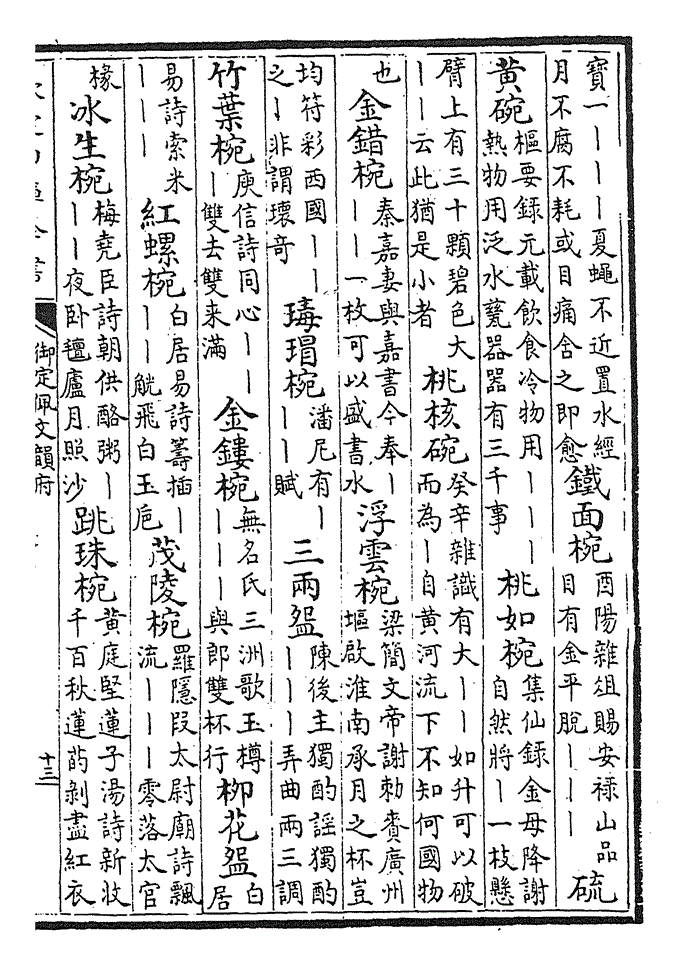 寶一｜｜｜夏蠅不近置水經月不腐不耗或目痛含之即愈鐵面椀酉陽雜俎賜安禄山品目有金平脫｜｜｜硫
黄碗樞要錄元載飲食冷物用｜｜｜熱物用泛水甆器器有三千事桃如椀集仙錄金母降謝自然將｜一枝懸
臂上有三十顆碧色大｜｜云此猶是小者桃核碗癸辛雜識有大｜｜如升可以破而為｜自黄河流下不知何國物
也金錯椀秦嘉妻與嘉書今奉｜｜｜一枚可以盛書水浮雲椀梁簡文帝謝勑賚廣州塸啟淮南承月之杯豈
均符彩西國｜｜之｜非謂瓌奇瑇瑁椀潘尼有｜｜｜賦三兩盌陳後主獨酌謡獨酌｜｜｜弄曲兩三調
竹葉椀庾信詩同心｜｜｜雙去雙来滿金鏤椀無名氏三洲歌玉樽｜｜｜與郎雙杯行柳花盌白居
易詩索米｜｜｜紅螺椀白居易詩籌插｜｜｜觥飛白玉巵茂陵椀羅隱段太尉廟詩飄流｜｜｜零落太官
椽冰生椀梅堯臣詩朝供酪粥｜｜｜夜卧氊廬月照沙跳珠椀黄庭堅蓮子湯詩新妝千百秋蓮菂剥盡紅衣
御定佩文韻府
十三